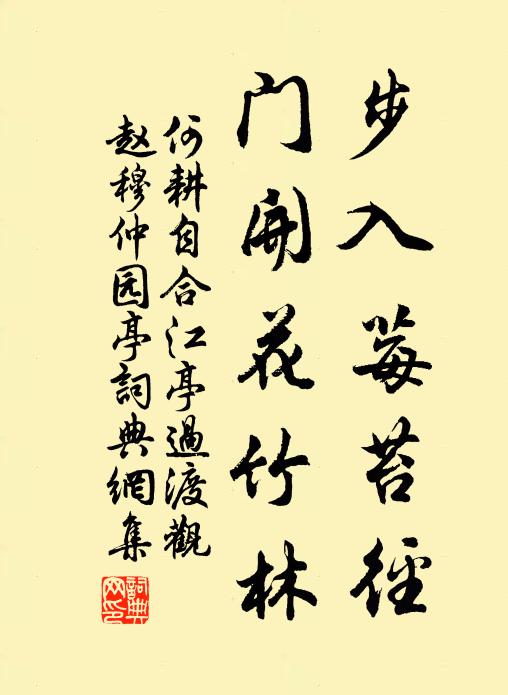 步入莓苔径
门开花竹林
何耕自合江亭過渡觀
赵穆仲园亭詞典網集
詞典网印